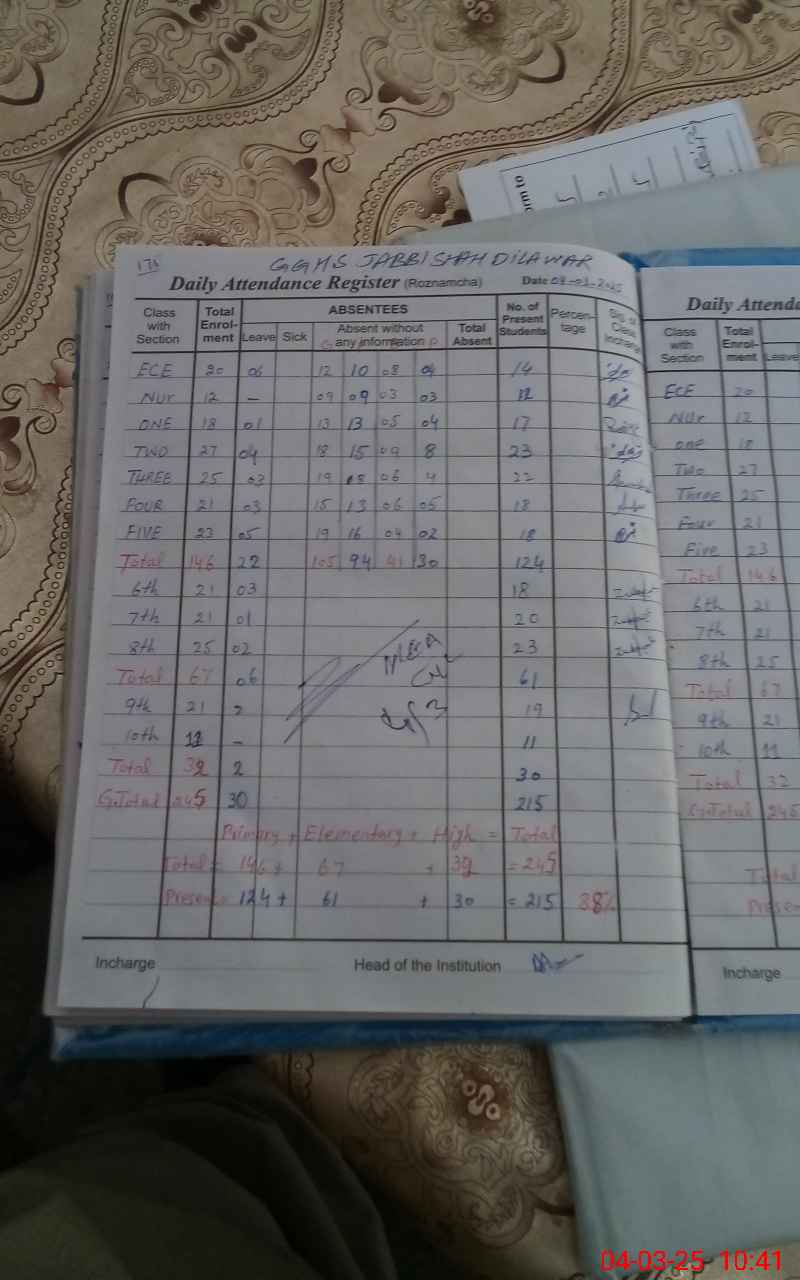 171
GGHS JABBI SHAH DILAWAR
Daily Attendance Register (Roznamcha) Date 04-03-2025
Class with Section Total Enrol-ment ABSENTEES No. of Present Students Percen-tage Sig. of Class Incharge
Leave Sick Absent without any information Total Absent
G P
ECE 20 06 12 10 08 04 14
Nur 12 - 09 09 03 03 12
ONE 18 01 13 13 05 04 17
TWO 27 04 18 15 09 8 23
THREE 25 03 19 18 06 4 22
FOUR 21 03 15 13 06 05 18
FIVE 23 05 19 16 04 02 18
Total 146 22 105 94 41 30 124
6th 21 03 18
7th 21 01 20
8th 25 02 23
Total 67 06 61
9th 21 2 19
10th 11 - 11
Total 32 2 30
G.Total 245 30 215
Primary + Elementary + High = Total
Total = 146 + 67 + 32 = 245
Present = 124 + 61 + 30 = 215 88%
Incharge Head of the Institution
Daily Attenda
Class with Section Total Enrol-ment Leave
ECE 20
Nur 12
one 18
Two 27
Three 25
Four 21
Five 23
Total 146
6th 21
7th 21
8th 25
Total 67
9th 21
10th 11
Total 32
G.Total 245
Total
Presen
Incharge
04-03-25 10:41